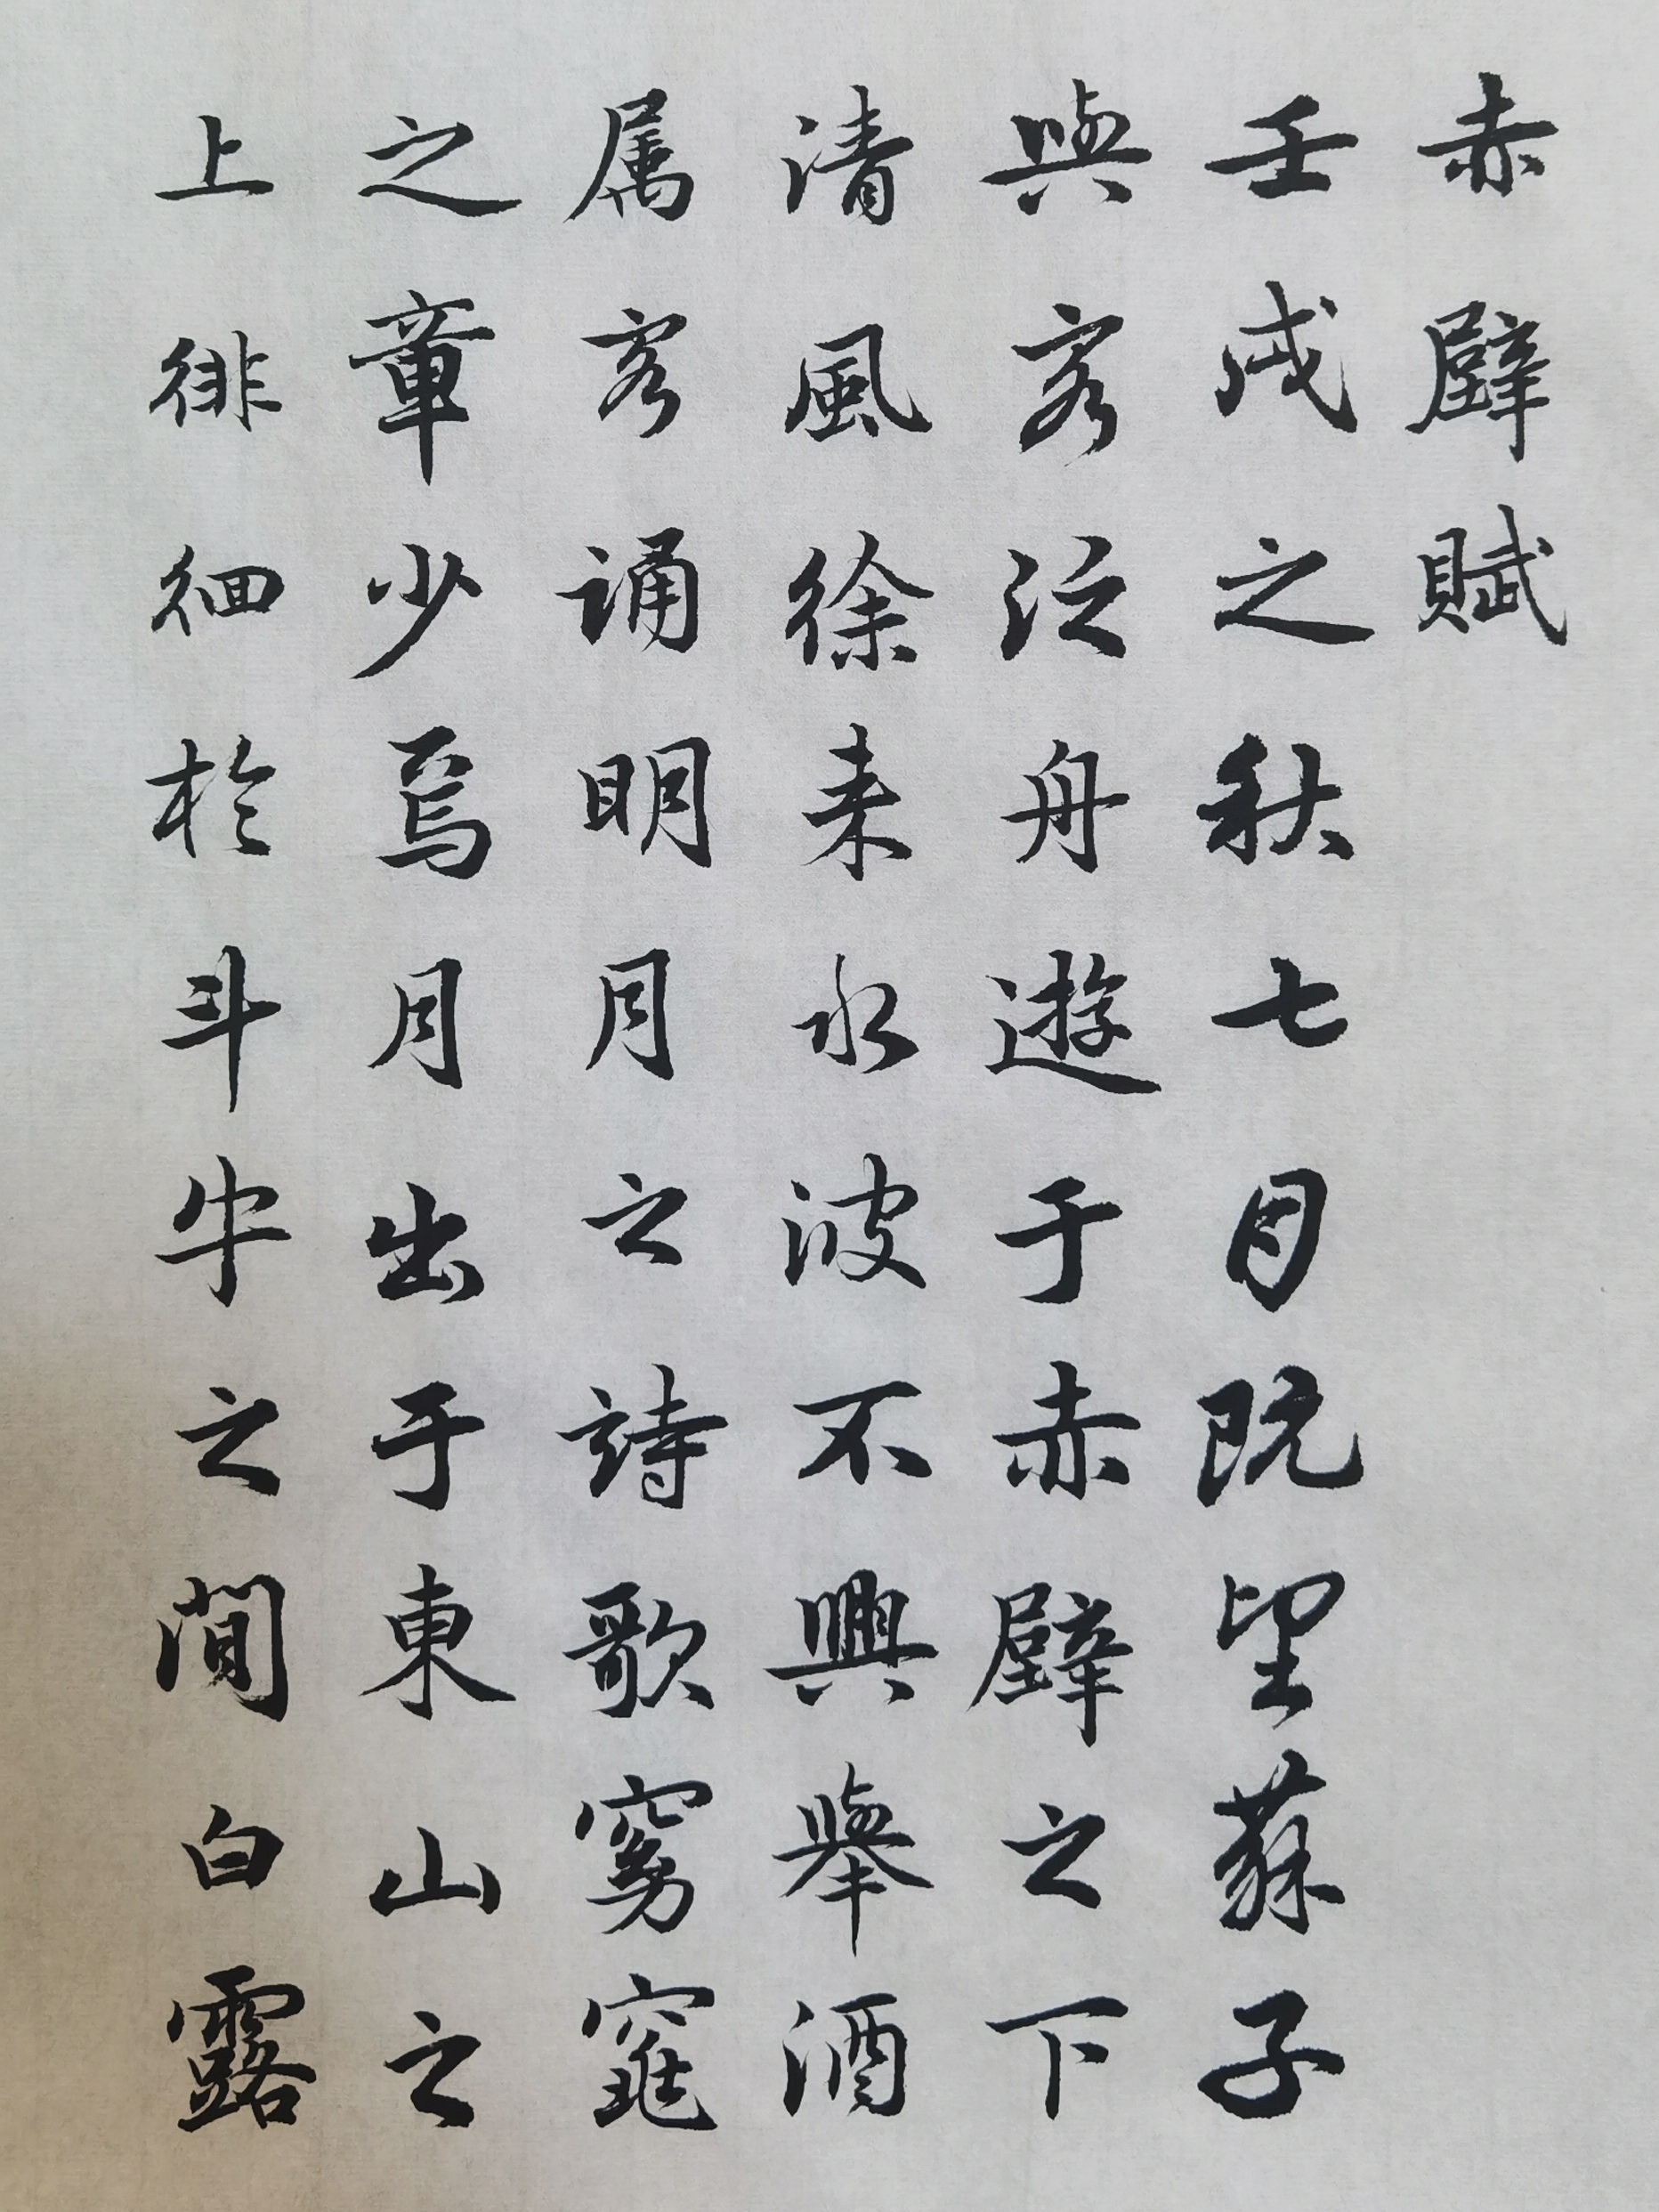 赤壁賦
壬戌之秋七月既望蘇子
與客泛舟遊于赤壁之下
清風徐来水波不興舉酒
属客誦明月之詩歌窈窕
之章少焉月出于東山之
上徘徊於斗牛之間白露